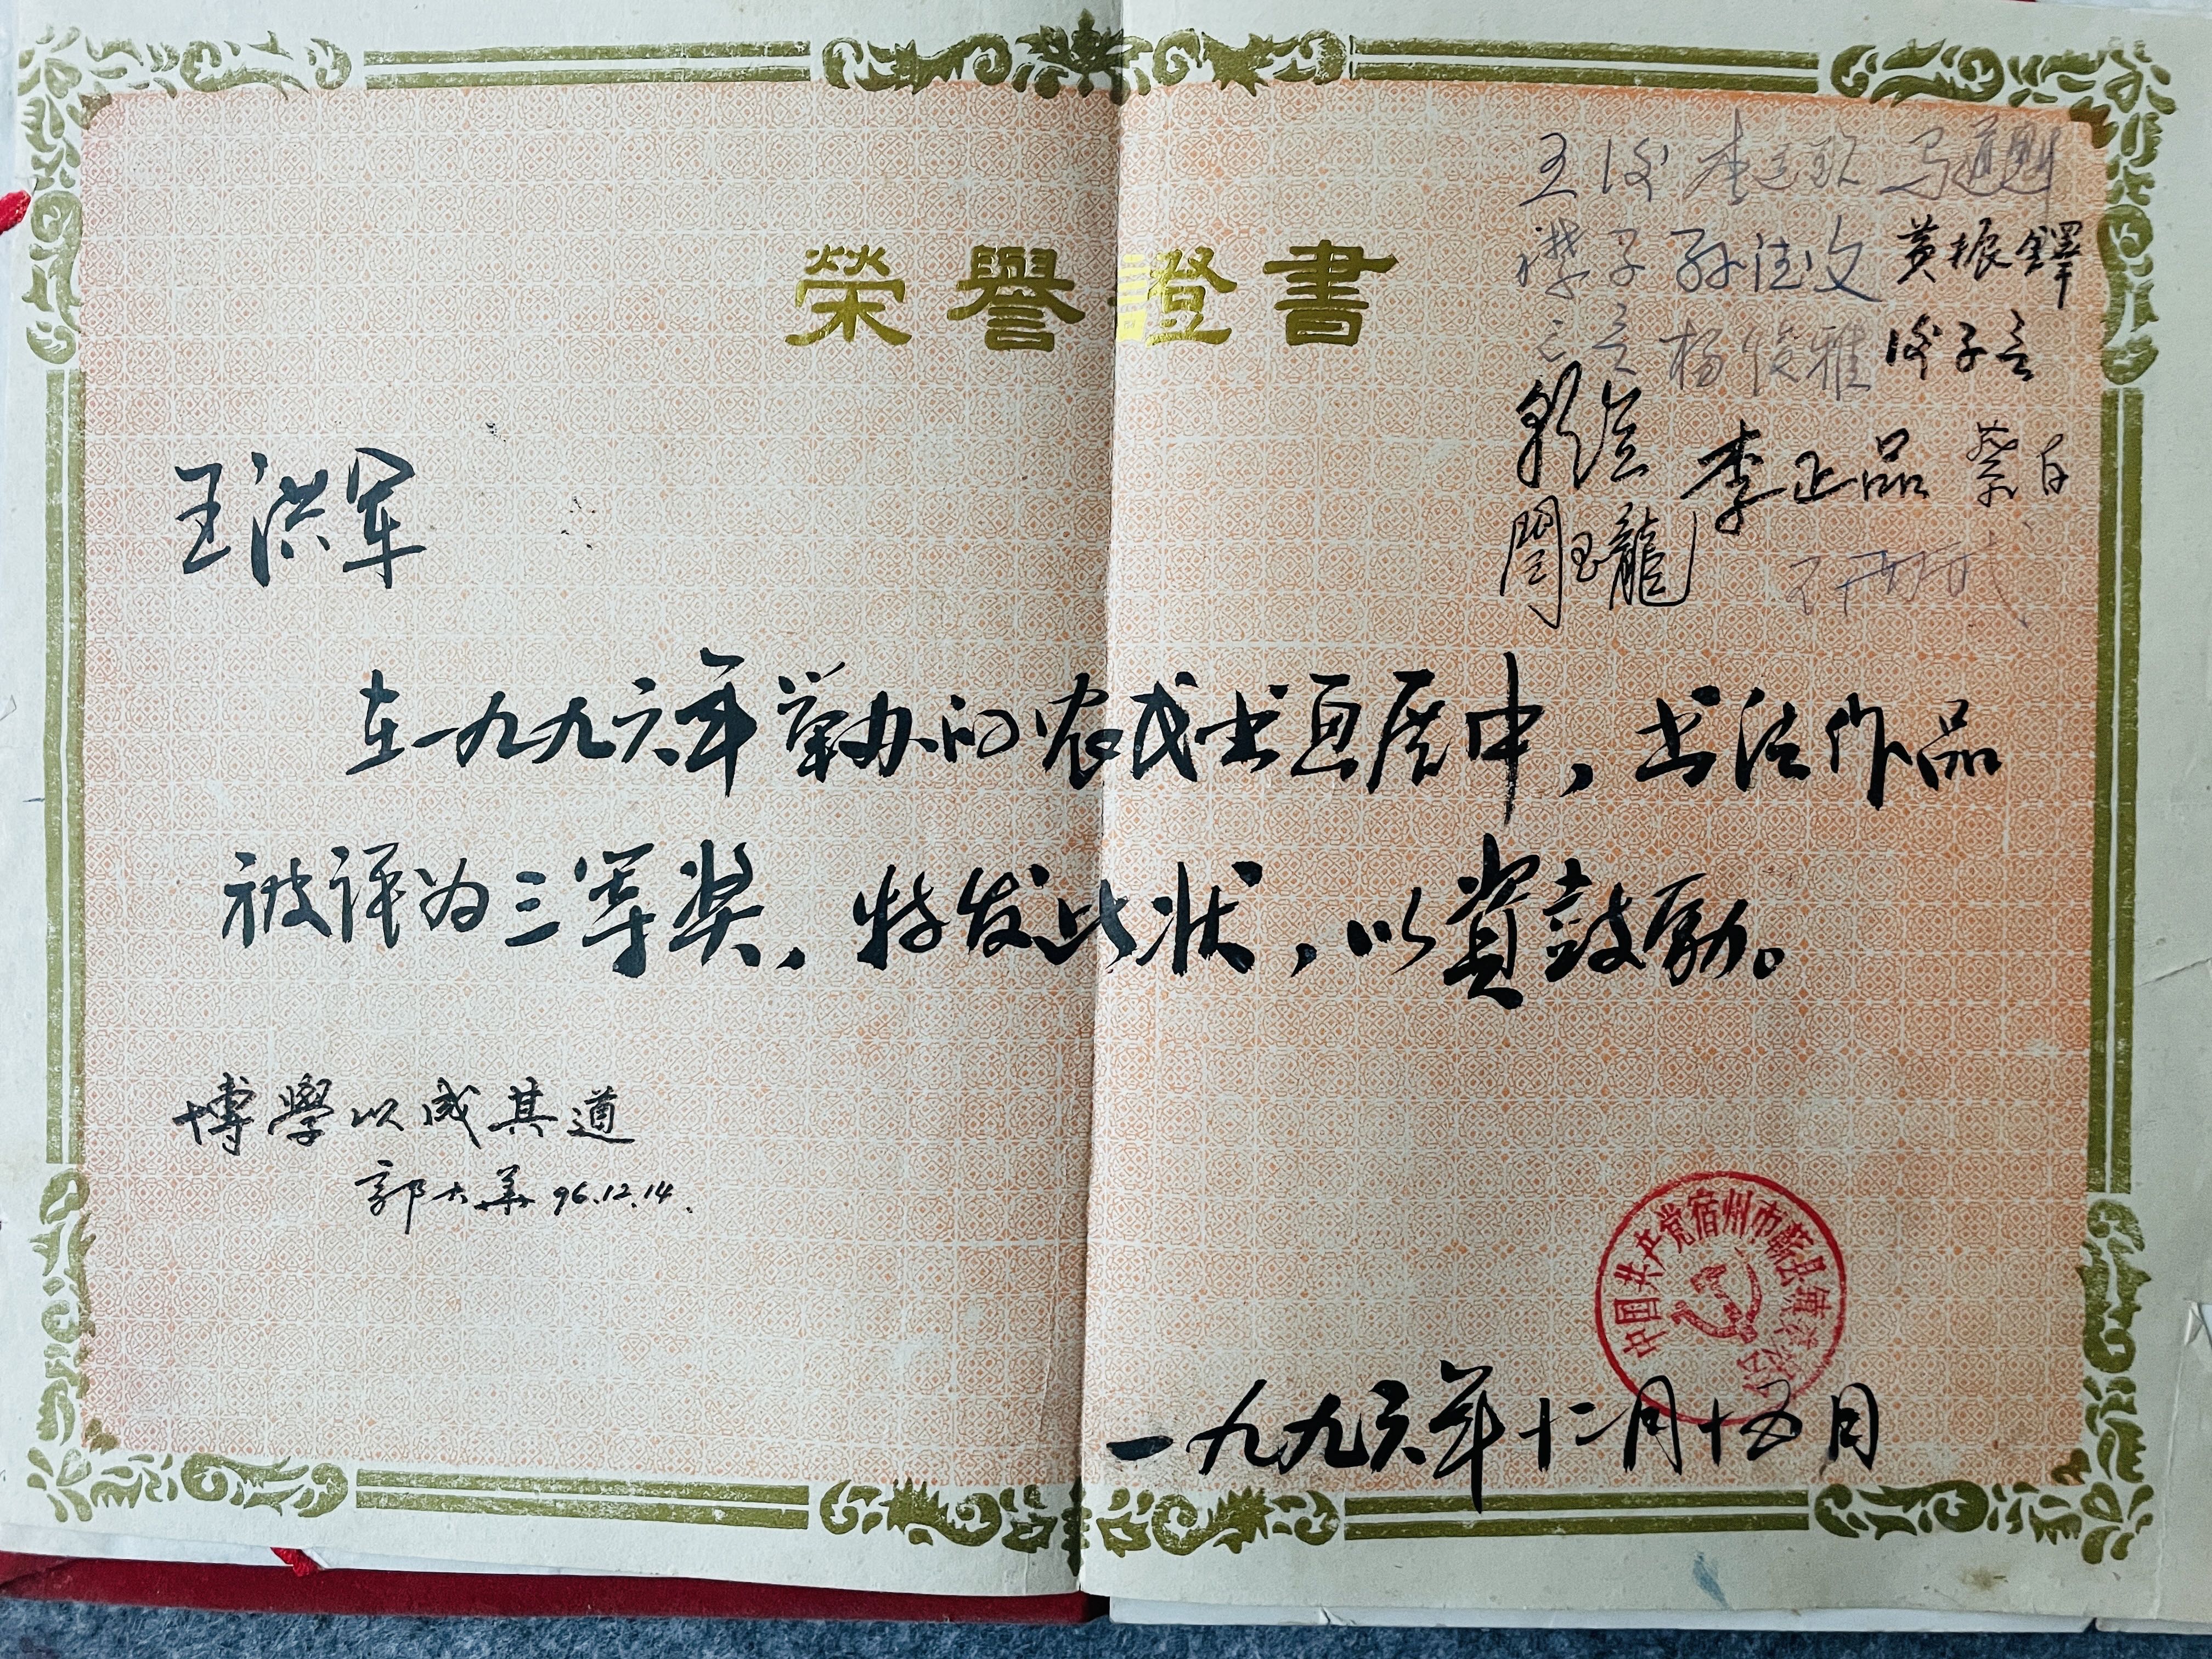 榮譽證書
黄振鐸
杨俊雅
李正品
闫玉龍
王洪军
在一九九六年举办的农民书画展中，书法作品
被评为三等奖，特发此状，以资鼓励。
博學以成其道
郭大華 96.12.14.
中国共产党宿州市蕲县镇委员会
一九九六年十二月十五日